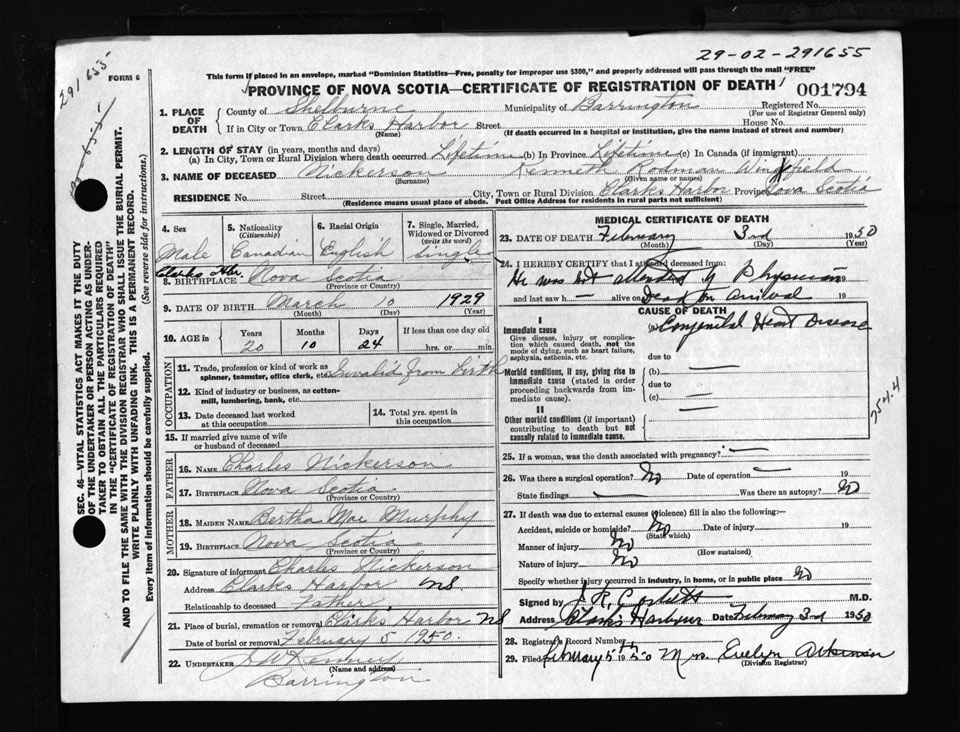 29-02-291655
291 655
FORM 6
This form if placed in an envelope, marked "Dominion Statistics—Free, penalty for improper use $300," and properly addressed will pass through the mail "FREE"
PROVINCE OF NOVA SCOTIA—CERTIFICATE OF REGISTRATION OF DEATH
001794
SEC. 46—VITAL STATISTICS ACT MAKES IT THE DUTY
OF THE UNDERTAKER OR PERSON ACTING AS UNDER-
TAKER TO OBTAIN ALL THE PARTICULARS REQUIRED
IN THE "CERTIFICATE OF REGISTRATION OF DEATH"
AND TO FILE THE SAME WITH THE DIVISION REGISTRAR WHO SHALL ISSUE THE BURIAL PERMIT.
WRITE PLAINLY WITH UNFADING INK. THIS IS A PERMANENT RECORD.
Every item of information should be carefully supplied. (See reverse side for instructions.)
1. PLACE OF DEATH
County of Shelburne Municipality of Barrington Registered No.
(For use of Registrar General only)
If in City or Town Clarks Harbor Street House No.
(Name) (If death occurred in a hospital or institution, give the name instead of street and number)
2. LENGTH OF STAY (in years, months and days)
(a) In City, Town or Rural Division where death occurred Lifetime (b) In Province Lifetime (c) In Canada (if immigrant)
3. NAME OF DECEASED Nickerson Kenneth Rodman Wingfield
(Surname) (Given name or names)
RESIDENCE No. Street City, Town or Rural Division Clarks Harbor Province Nova Scotia
(Residence means usual place of abode. Post Office Address for residents in rural parts not sufficient)
4. Sex
Male
5. Nationality
(Citizenship)
Canadian
6. Racial Origin
English
7. Single, Married, Widowed or Divorced
(Write the word)
Single
8. BIRTHPLACE Clarks Hbr. Nova Scotia
(Province or Country)
9. DATE OF BIRTH March 10 1929
(Month) (Day) (Year)
10. AGE in Years Months Days If less than one day old
20 10 24 hrs. or min.
OCCUPATION
11. Trade, profession or kind of work as
spinner, teamster, office clerk, etc. Invalid from birth
12. Kind of industry or business, as cotton-
mill, lumbering, bank, etc.
13. Date deceased last worked
at this occupation
14. Total yrs. spent in
this occupation
15. If married give name of wife
or husband of deceased
FATHER
16. NAME Charles Nickerson
17. BIRTHPLACE Nova Scotia
(Province or Country)
MOTHER
18. MAIDEN NAME Bertha Mae Murphy
19. BIRTHPLACE Nova Scotia
(Province or Country)
20. Signature of informant Charles Nickerson
Address Clarks Harbor NS
Relationship to deceased Father
21. Place of burial, cremation or removal Clarks Harbor NS
Date of burial or removal February 5 1950.
22. UNDERTAKER
(Name and address)
Barrington
MEDICAL CERTIFICATE OF DEATH
23. DATE OF DEATH February 3rd 1950
(Month) (Day) (Year)
24. I HEREBY CERTIFY that I attended deceased from:
He was not attended by Physician
and last saw h — alive on Dead on arrival 19
CAUSE OF DEATH
I
Immediate cause
Give disease, injury or complica-
tion which caused death, not the
mode of dying, such as heart failure,
asphyxia, asthenia, etc.
(a) Congenital Heart Disease
due to
Morbid conditions, if any, giving rise to
immediate cause (stated in order
proceeding backwards from im-
mediate cause).
(b) —
due to
(c) —
II
Other morbid conditions (if important)
contributing to death but not
causally related to immediate cause.
754.4
25. If a woman, was the death associated with pregnancy? —
26. Was there a surgical operation? No Date of operation — 19
State findings — Was there an autopsy? No
27. If death was due to external causes (violence) fill in also the following:—
Accident, suicide or homicide? No Date of injury 19
(State which)
Manner of injury No
(How sustained)
Nature of injury No
Specify whether injury occurred in industry, in home, or in public place No
Signed by M.D.
Address Clarks Harbour Date February 3rd 1950
28. Registrar's Record Number
29. Filed February 5th 1950 Mrs. Evelyn Atkinson
(Division Registrar)